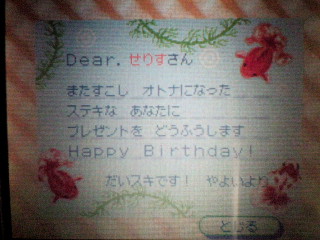 Dear. せりすさん
またすこし オトナになった
ステキな あなたに
プレゼントを どうふうします
Happy Birthday!
だいスキです! やよいより
とじる